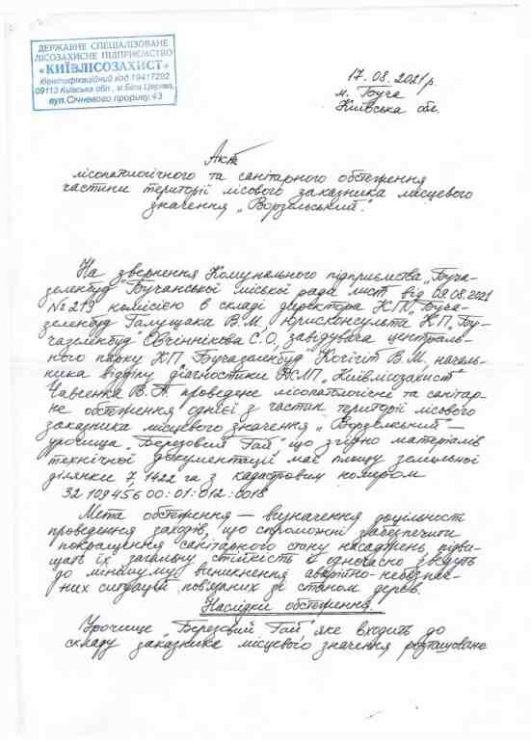 ДЕРЖАВНЕ СПЕЦІАЛІЗОВАНЕ
ЛІСОЗАХИСНЕ ПІДПРИЄМСТВО
«КИЇВЛІСОЗАХИСТ»
Ідентифікаційний код 19417292
09113 Київська обл., м.Біла Церква,
вул.Січневого прориву,43
17.08.2021р
м. Буча
Київська обл.
Акт
лісопатологічного та санітарного обстеження
частини території лісового заказника місцевого
значення „Ворзельський".
На звернення Комунального підприємства „Буча-
зеленбуд" Бучанської міської рада лист від 09.08.2021
№213 комісією в складі директора КП „Буча-
зеленбуд" Галущака В.М, юрисконсульта КП „Бу-
чазеленбуд" Овчіннікова С.О, завідувача централь-
ного парку КП „Бучазеленбуд" В.М, началь-
ника відділу діагностики „Київлісозахист"
Савченка В.П. проведене лісопатологічне та санітар-
не обстеження однієї з частин території лісового
заказника місцевого значення „Ворзельський" —
урочища „Березовий Гай" що згідно матеріалів
технічної документації має площу земельної
ділянки 7,1422 га з кадастровим номером
32 109456 00:01:012:0018
Мета обстеження — визначення доцільності
проведення заходів, що спроможні забезпечити
покращення санітарного стану насаджень, підви-
щать їх загальну стійкість й одночасно зведуть
до мінімуму виникнення аварійно-небезпеч-
них ситуацій пов'язаних за станом дерев.
Наслідки обстеження.
Урочище „Березовий Гай" яке входить до
складу заказника місцевого значення розташовано